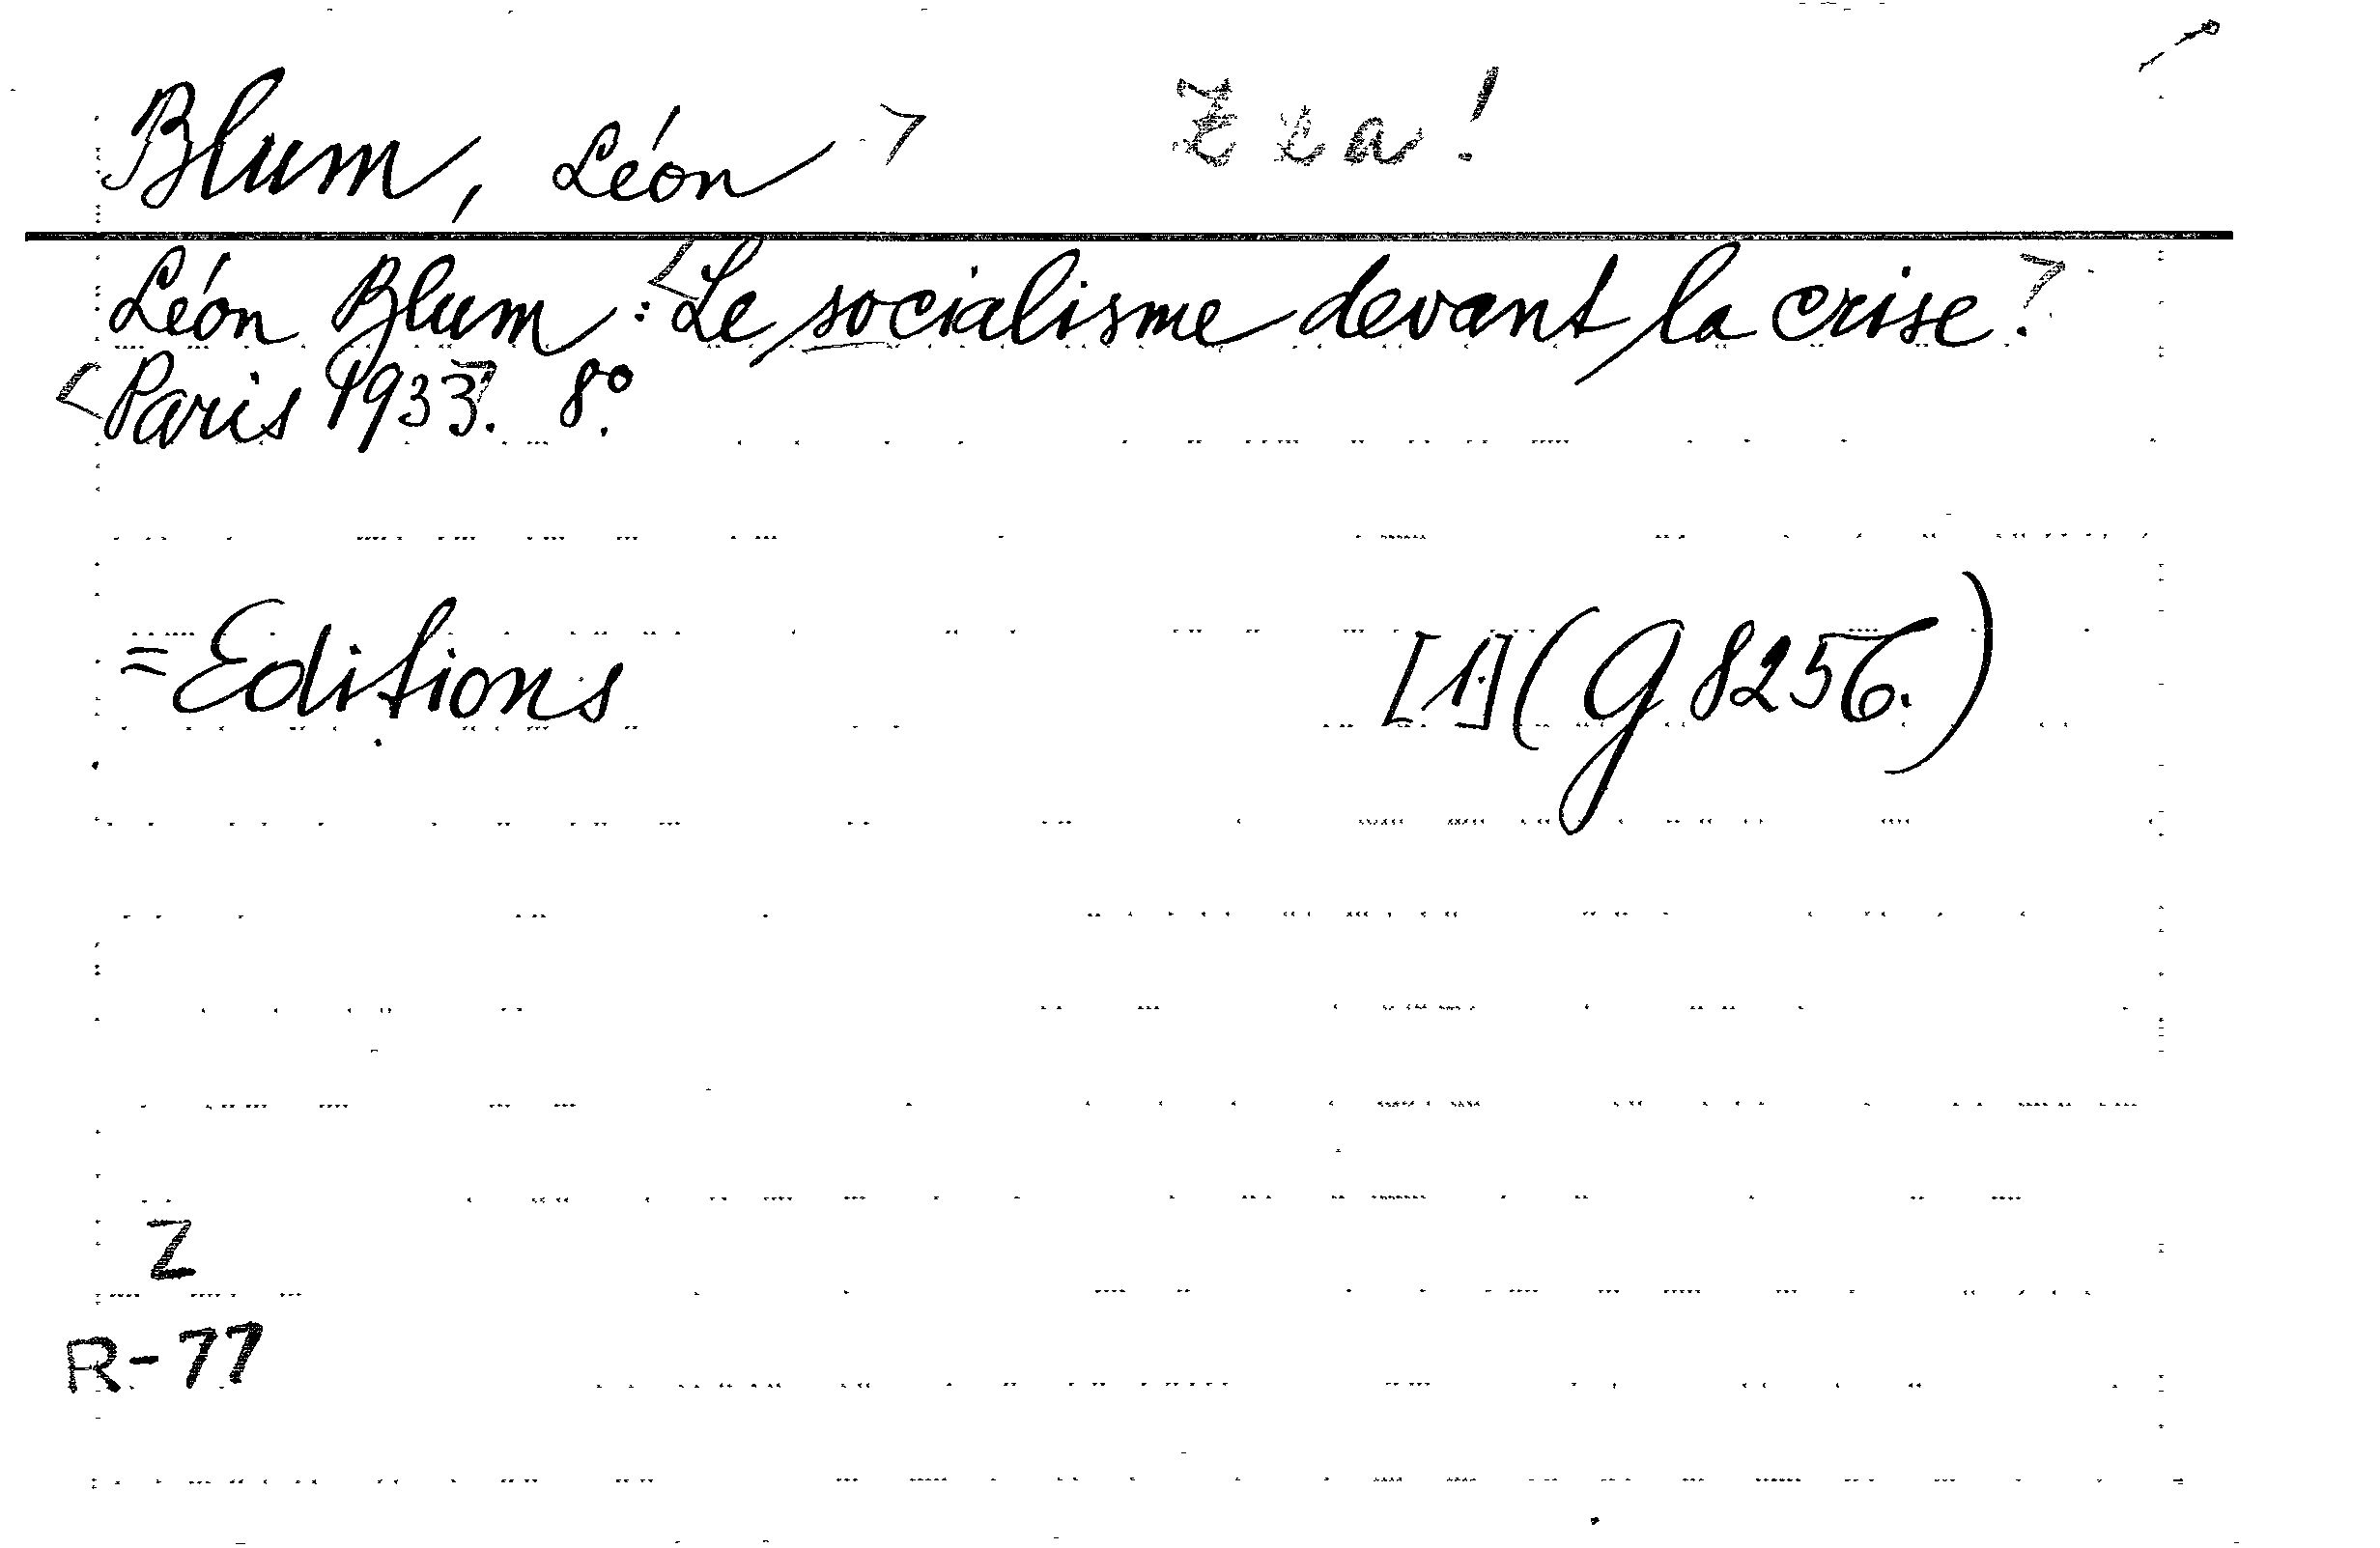 Blum, Léon
Léon Blum: Le socialisme devant la crise.
Paris 1933. 8°.
= Editions [1] (G 8256.)
Z
R-77